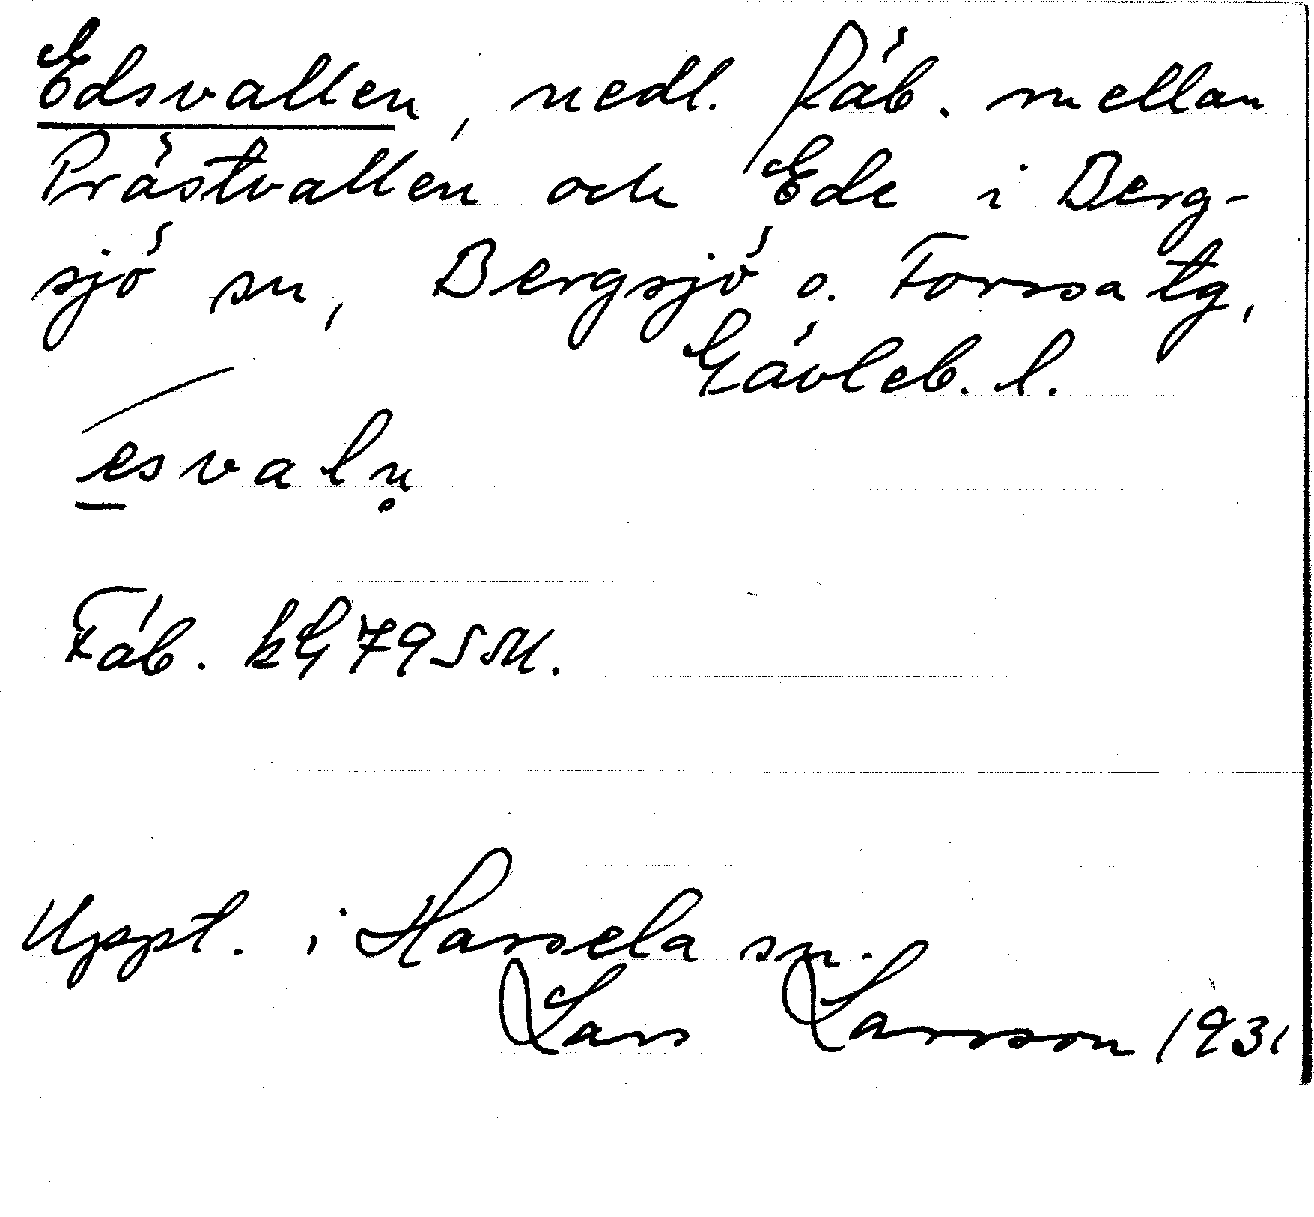 Edsvallen, nedl. fäb. mellan
Prästvallen och Ede i Berg-
sjö sn, Bergsjö o. Forssa tg,
Gävleb. l.
esvaln̥
Fäb. kG 795M.
Uppt. i Hassela sn.
Lars Larsson 1931